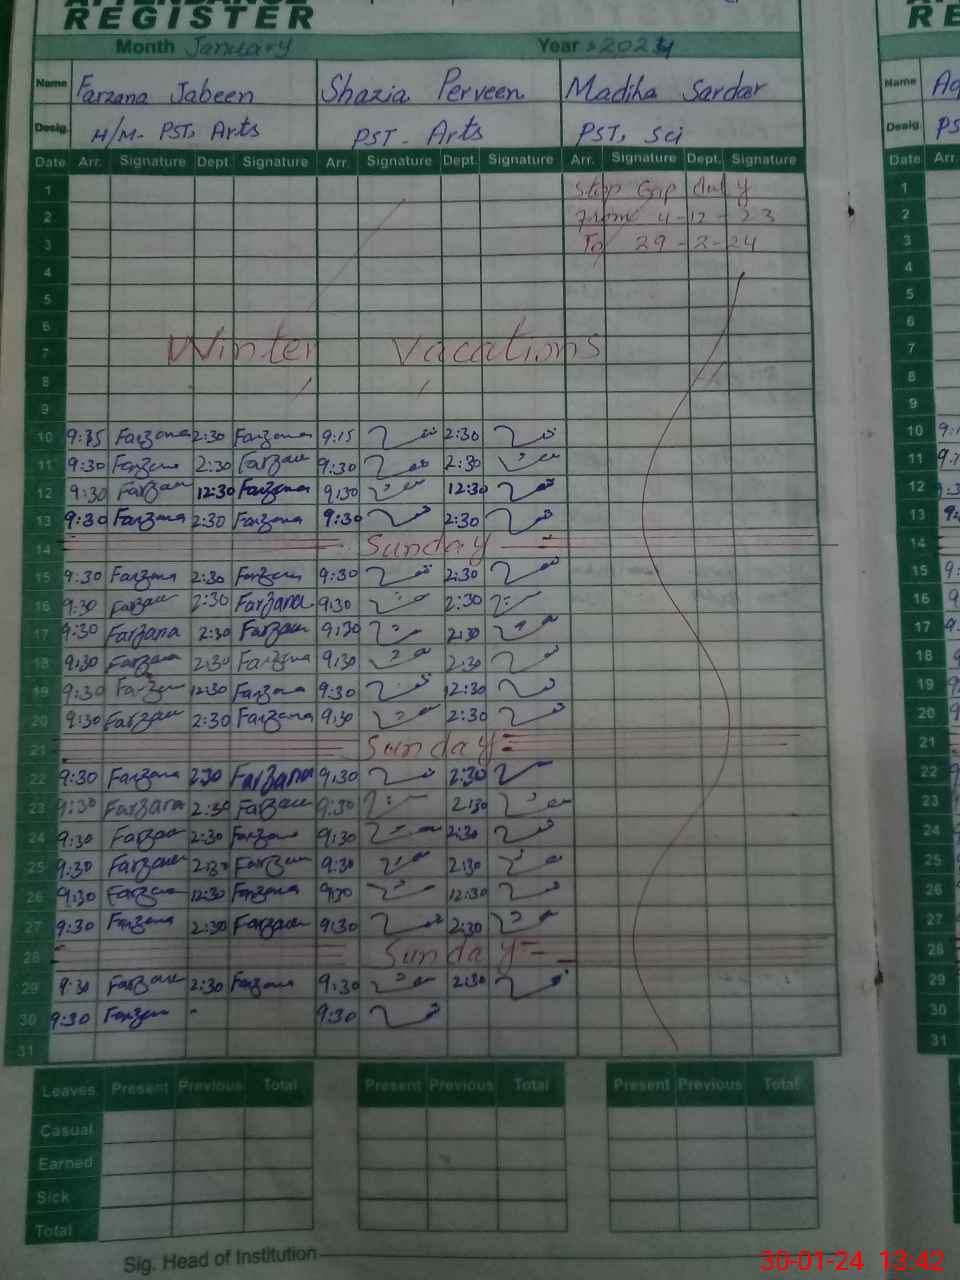 REGISTER
Month January Year 2024
Name Farzana Jabeen Shazia Perveen Madiha Sardar Name
Desig. H/M- PST, Arts PST- Arts PST, Sci Desig
Date Arr. Signature Dept. Signature Arr. Signature Dept. Signature Arr. Signature Dept. Signature Date Arr.
1 Stop Gap duty 1
2 From 4-12-23 2
3 To 29-2-24 3
4 4
5 5
6 6
7 Winter Vacations 7
8 8
9 9
10 9:15 Farzana 2:30 Farzana 9:15 2:30 10
11 9:30 Farzana 2:30 Farzana 9:30 2:30 11
12 9:30 Farzana 12:30 Farzana 9:30 12:30 12
13 9:30 Farzana 2:30 Farzana 9:30 2:30 13
14 Sunday 14
15 9:30 Farzana 2:30 Farzana 9:30 2:30 15
16 9:30 Farzana 2:30 Farzana 9:30 2:30 16
17 9:30 Farzana 2:30 Farzana 9:30 2:30 17
18 9:30 Farzana 2:30 Farzana 9:30 2:30 18
19 9:30 Farzana 12:30 Farzana 9:30 12:30 19
20 9:30 Farzana 2:30 Farzana 9:30 2:30 20
21 Sunday 21
22 9:30 Farzana 2:30 Farzana 9:30 2:30 22
23 9:30 Farzana 2:30 Farzana 9:30 2:30 23
24 9:30 Farzana 2:30 Farzana 9:30 2:30 24
25 9:30 Farzana 2:30 Farzana 9:30 2:30 25
26 9:30 Farzana 12:30 Farzana 9:30 12:30 26
27 9:30 Farzana 2:30 Farzana 9:30 2:30 27
28 Sunday 28
29 9:30 Farzana 2:30 Farzana 9:30 2:30 29
30 9:30 Farzana - 9:30 30
31 31
Leaves Present Previous Total Present Previous Total Present Previous Total
Casual
Earned
Sick
Total
Sig. Head of Institution
30-01-24 13:42